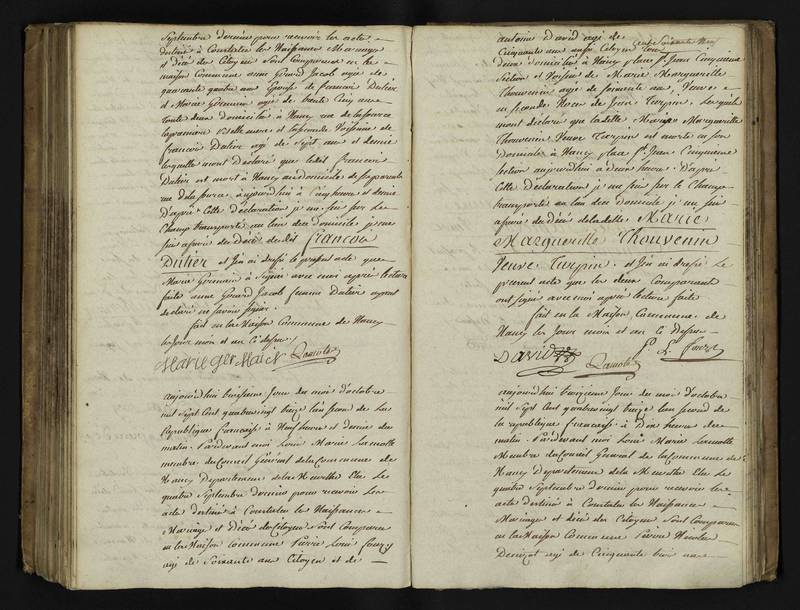 Septembre dernier pour recevoir les actes
destinés à Constater les Naissances Mariages
et décès des Citoyens Sont Comparus en la
maison Commune anne Gerard Jacob agée de
quarante quatre ans Epouse de francois Dutier
et Marie Germain agée de trente Cinq ans
toute deux Domiciliés à Nancy rue de la source
la premiere belle mere et la seconde Voisine de
francois Dutier agé de Sept ans et demie
lesquelles mont Déclaré que ledit francois
Dutier est mort à Nancy au domicile de ses parents
rue de la source, aujourdhui à Cinq heures et demie
D'après Cette Déclaration je me suis sur le
Champ transporté au lieu dece domicile je me
suis assuré du Décès dudit francois
Dutier et j'en ai dressé le present acte que
Marie Germain à Signé avec moi après lecture
faite anne Gerard Jacob femme Dutier ayant
declaré ne savoir signer.
fait en la Maison Commune de Nancy
les Jour mois et an Ci dessus
Marie ger Main Lamolle
aujourdhui treizieme Jour du mois d'octobre
mil Sept Cent quatre vingt treize l'an second de la
République francaise à Neuf heures et demie du
matin. Pardevant moi Louis Marie Lamolle
membre du Conseil Général de la Commune de
Nancy Departement de la Meurthe Elu le
quatre Septembre dernier pour recevoir les
acte destinés à Constater les Naissances
Mariages et Décès des Citoyens Sont Comparus
en la Maison Commune Pierre Louis
agé de Soixante ans Citoyen et de
antoine David agé de
Cinquante ans aussi Citoyen tous
deux domiciliés à Nancy place St. Jean Cinquieme
Section et Voisins de Marie Marguerite
Thouvenin agée de soixante ans Veuve
en secondes Noces de Jean Turpin. Lesquels
mont declaré que ladelle Marie Marguerite
Thouvenin Veuve Turpin est morte en son
Domicile à Nancy place St. Jean Cinquieme
section aujourdhui à deux heures. D'après
Cette Déclaration je me suis sur le Champ
transporté au lieu dece domicile je me suis
assuré du décès de ladelle Marie
Marguerite Thouvenin
Veuve Turpin. et j'en ai dressé le
present acte que les deux Comparants
ont signé avec moi après lecture faite
fait en la Maison Commune de
Nancy les Jour mois et an Ci Dessus
David P. L.
Lamolle
aujourdhui treizieme Jour du mois d'octobre
mil sept Cent quatre vingt treize l'an second de
la republique francaise à Dix heures du
matin. Pardevant moi Louis Marie Lamolle
Membre du Conseil General de la Commune de
Nancy Departement de la Meurthe Elu le
quatre septembre dernier pour recevoir les
acte destinés à Constater les Naissances
Mariages et décès des Citoyens Sont Comparus
en la Maison Commune Pierre Nicolas
agé de Cinquante trois ans